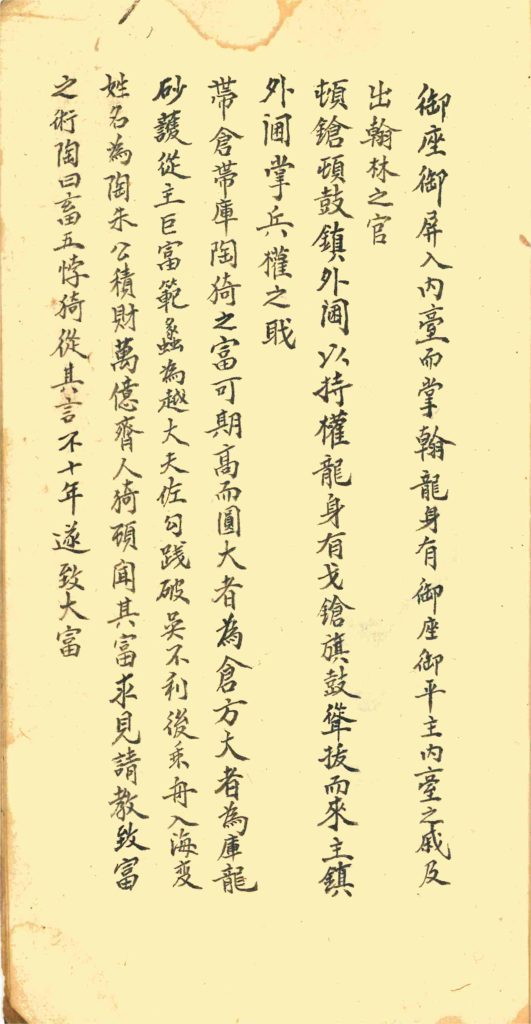 御座御屏入內臺而掌翰龍身有御座御平主內臺之戚及
出翰林之官
頓鎗頓鼓鎮外閫以持權龍身有戈鎗旗鼓聳拔而來主鎮
外閫掌兵權之戝
帯倉帯庫陶猗之富可期高而圓大者為倉方大者為庫龍
砂護從主巨富範蠡為越大夫佐勾踐破吳不利後乘舟入海変
姓名為陶朱公積財萬億齊人猗頓聞其富求見請教致富
之術陶曰畜五悖猗從其言不十年遂致大富